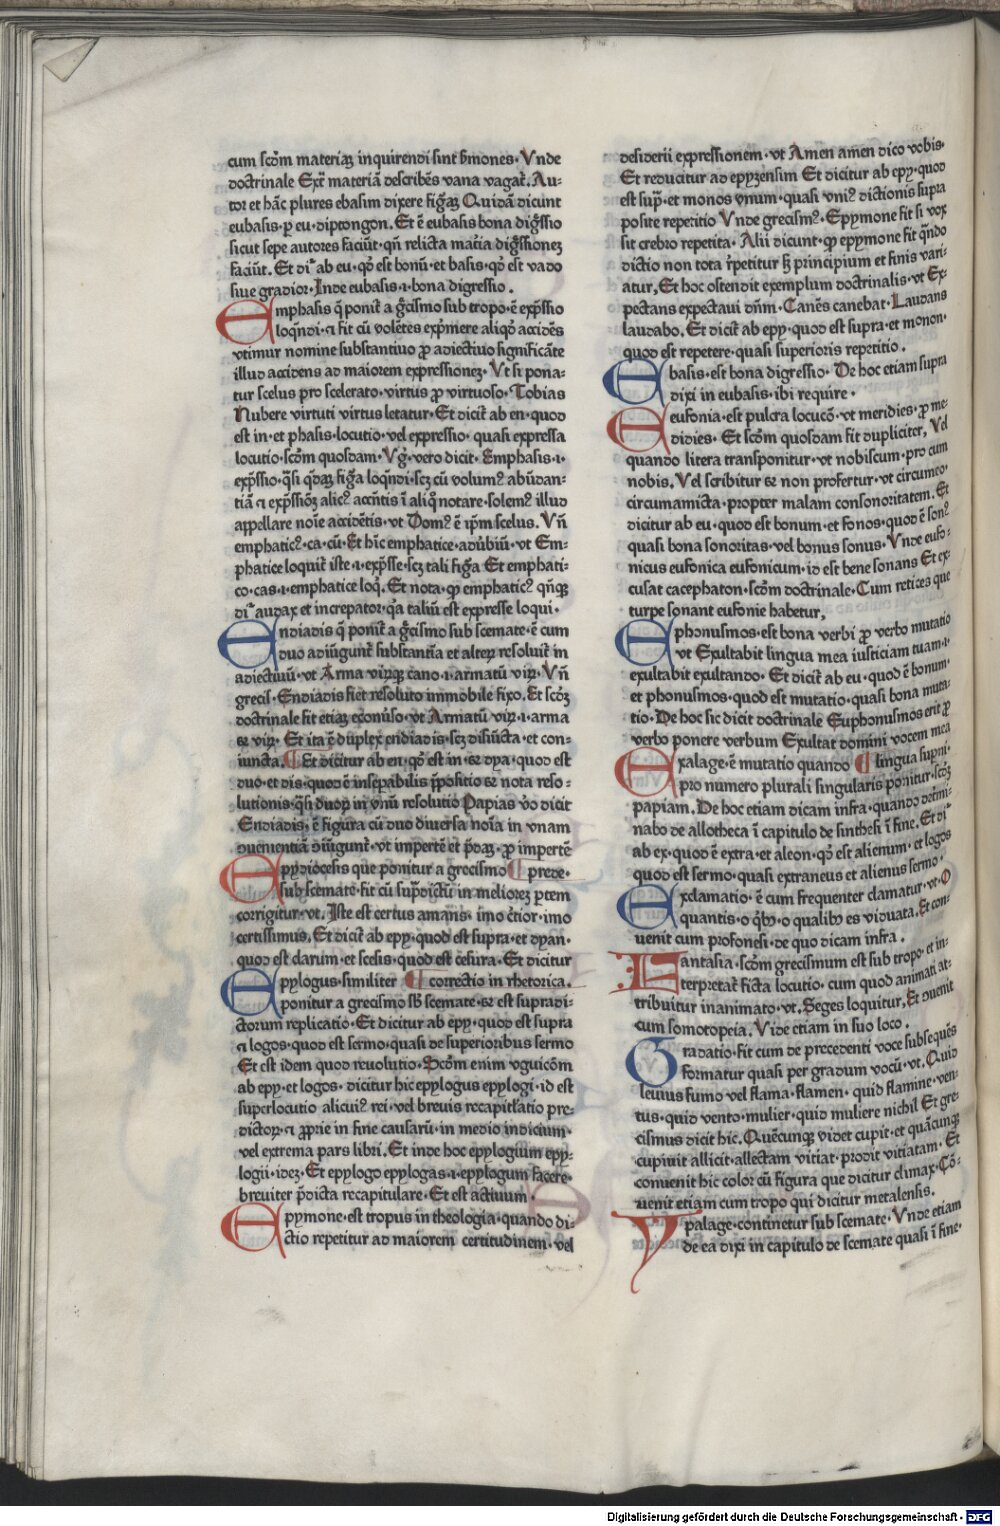 cum scōm materiaꝫ inquirendi sint ẜmones. Vnde
doctrinale Exͭ materiā describēs vana vagat᷑. Au-
tor et hāc plures ebasim dixere figāꝫ Quidā dicunt
eubasis. ꝑ eu. diptongon. Et ē eubasis bona dig̃ssio
sicut sepe autores faciūt. qn̄ relicta mat̄ia dig̃ssionez
faciūt. Et dr̄ ab eu. qd̛ est bonū. et basis. qd̛ est vado
siue gradior. Inde eubasis .i. bona digressio.
Emphasis q̄ ponit᷑ a g̃cismo sub tropo. ē exp̄ssio
loqn̄di. ⁊ fit cū volētes exp̄mere aliqd̛ accidēs
vtimur nomine substantiuo ꝓ adiectiuo significāte
illud accidens ad maiorem expressionez. Vt si pona-
tur scelus pro scelerato. virtus ꝓ virtuoso. Tobias
Nubere virtuti virtus letatur. Et dicit᷑ ab en. quod
est in. et phasis. locutio. vel expressio. quasi expressa
locutio. scōm quosdam. Vg̛. vero dicit. Emphasis .i.
exp̄ssio. q̄si q̄daꝫ figr̄a loqn̄di. scꝫ cū volumꝰ abūdan-
tiā ⁊ exp̄ssiōꝫ alicꝰ accn̄tis ī aliq̄ notare. solemꝰ illud
appellare noīe accidētis. vt Domꝰ ē ip̄m scelus. Vn̄
emphaticꝰ. ca. cū. Et hīc emphatice. aduḃiū. vt Em-
phatice loquit᷑ iste .i. exp̄sse. scꝫ tali figr̄a Et emphati-
co. cas. i. emphatice loq̄. Et nota. ꝙ emphaticꝰ qn̄qꝫ
dr̄ audax et increpator. q̛a taliū est expresse loqui.
Endiadis q̄ ponit᷑ a g̃cismo sub scemate. ē cum
duo adiūgunt᷑ substantīa et alterꝝ resoluit᷑ in
adiectiuū. vt Arma virūqꝫ cano .i. armatū virꝝ. Vn̄
grecis. Endiadis fiet resoluto immobile fixo. Et scōꝫ
doctrinale fit etiaꝫ ecōnūso. vt Armatū virꝝ .i. arma
⁊ virꝝ. Et ita ē duplex endiadis. scꝫ disiūcta. et con-
iuncta. ¶ Et dicitur ab en. qd̛ est in. ⁊ dya. quod est
duo. et dis. quod ē insepabilis p̄positio ⁊ nota reso-
lutionis. q̄si duoꝝ in vnū resolutio Papias v̊o dicit
Endiadis, ē figura cū duo diuersa noīa in vnam
ꝯuenientiā ꝯiūgunt᷑. vt impetē et p̄daꝫ. ꝓ impetē
Epydiocesis que ponitur a grecismo ¶ prede.
sub scemate. fit cū sup̄dictū in meliorez ꝑtem
corrigitur. vt. Iste est certus amans. imo c̄tior. imo
certissimus. Et dicit᷑ ab epy. quod est supra. et dyan.
quod est darum. et scesis. quod est cesura. Et dicitur
Epylogus. similiter ¶ correctio in rhetorica.
ponitur a grecismo sb̛ scemate. ⁊ est supradi-
ctorum replicatio. Et dicitur ab epy. quod est supra
⁊ logos. quod est sermo. quasi de superioribus sermo
Et est idem quod reuolutio. Scōm enim vguicōm
ab epy. et logos. dicitur hic epylogus epylogi. id est
superlocutio alicuiꝰ rei. vel breuis recapitl̄atio pre-
dictoꝝ. ⁊ ꝓprie in fine causarū. in medio indicium.
vel extrema pars libri. Et inde hoc epylogium epy-
logii. idez. Et epylogo epylogas .i. epylogum facere.
breuiter p̄dicta recapitulare. Et est actiuum.
Epymone. est tropus in theologia. quando di-
ctio repetitur ad maiorem certitudinem. vel
desiderii expressionem. vt Amen amen dico vobis.
Et reducitur ad epyzensim Et dicitur ab epy. quod
est sup̄. et monos vnum. quasi vniꝰ dictionis supra
posite repetitio Vnde grecismꝰ. Epymone fit si vox
sit crebro repetita. Alii dicunt. ꝙ epymone fit qn̄do
dictio non tota r̄petitur sꝫ principium et finis vari-
atur, Et hoc ostendit exemplum doctrinalis. vt Ex-
pectans expectaui dn̄m. Canēs canebat. Laudans
laudabo. Et dicit᷑ ab epy. quod est supra. et monon.
quod est repetere. quasi superioris repetitio.
Ebasis. est bona digressio. De hoc etiam supra
dixi in eubasis. ibi require.
Eeufonia. est pulcra locucō. vt meridies. ꝓ me-
didies. Et scōm quosdam fit dupliciter, Vel
quando litera transponitur. vt nobiscum. pro cum
nobis. Vel scribitur ⁊ non profertur. vt circumeo.
circumamicta. propter malam consonoritatem. Et
dicitur ab eu. quod est bonum. et sonos. quod ē sonꝰ
quasi bona sonoritas. vel bonus sonus. Vnde eufo-
nicus eufonica eufonicum. id est bene sonans Et ex-
cusat cacephaton. scōm doctrinale. Cum retices que
turpe sonant eufonie habetur,
Ephonusmos. est bona verbi ꝓ verbo mutatio
vt Exultabit lingua mea iusticiam tuam .i.
exultabit exultando. Et dicit᷑ ab eu. quod ē bonum.
et phonusmos. quod est mutatio. quasi bona muta-
tio. De hoc sic dicit doctrinale Euphonusmos erit ꝓ
verbo ponere verbum Exultat domini vocem mea
Exalage. ē mutatio quando ¶ lingua sup̄ni.
pro numero plurali singularis ponitur. scōꝫ
papiam. De hoc etiam dicam infra. quando det̄mi-
nabo de allotheca ī capitulo de sinthesi ī fine. Et dr̄
ab ex. quod ē extra. et aleon. qd̛ est alienum. et logos
quod est sermo. quasi extraneus et alienus sermo.
Exclamatio. ē cum frequenter clamatur. vt. O
quantis. o qb̛ꝫ. o qualibꝫ es viduata. Et con-
uenit cum profonesi. de quo dicam infra.
Fantasia. scōm grecismum est sub tropo. et in-
terpretat᷑ ficta locutio. cum quod animati at-
tribuitur inanimato. vt. Seges loquitur, Et ꝯuenit
cum somotopeia. Vide etiam in suo loco.
Gradatio. fit cum de precedenti voce subsequēs
formatur quasi per gradum vocū. vt. Quid
leuius fumo vel flama. flamen. quid flamine. ven-
tus. quid vento. mulier. quid muliere nichil Et gre-
cismus dicit hic. Quēcunqꝫ videt cupit. et quācunqꝫ
cupiuit allicit. allectam vitiat. prodit vitiatam. Et
conuenit hic color cū figura que dicitur climax. Cō-
uenit etiam cum tropo qui dicitur metalensis.
Ypalage. continetur sub scemate. Vnde etiam
de ea dixi in capitulo de scemate quasi ī fine.
Digitalisierung gefördert durch die Deutsche Forschungsgemeinschaft - DFG